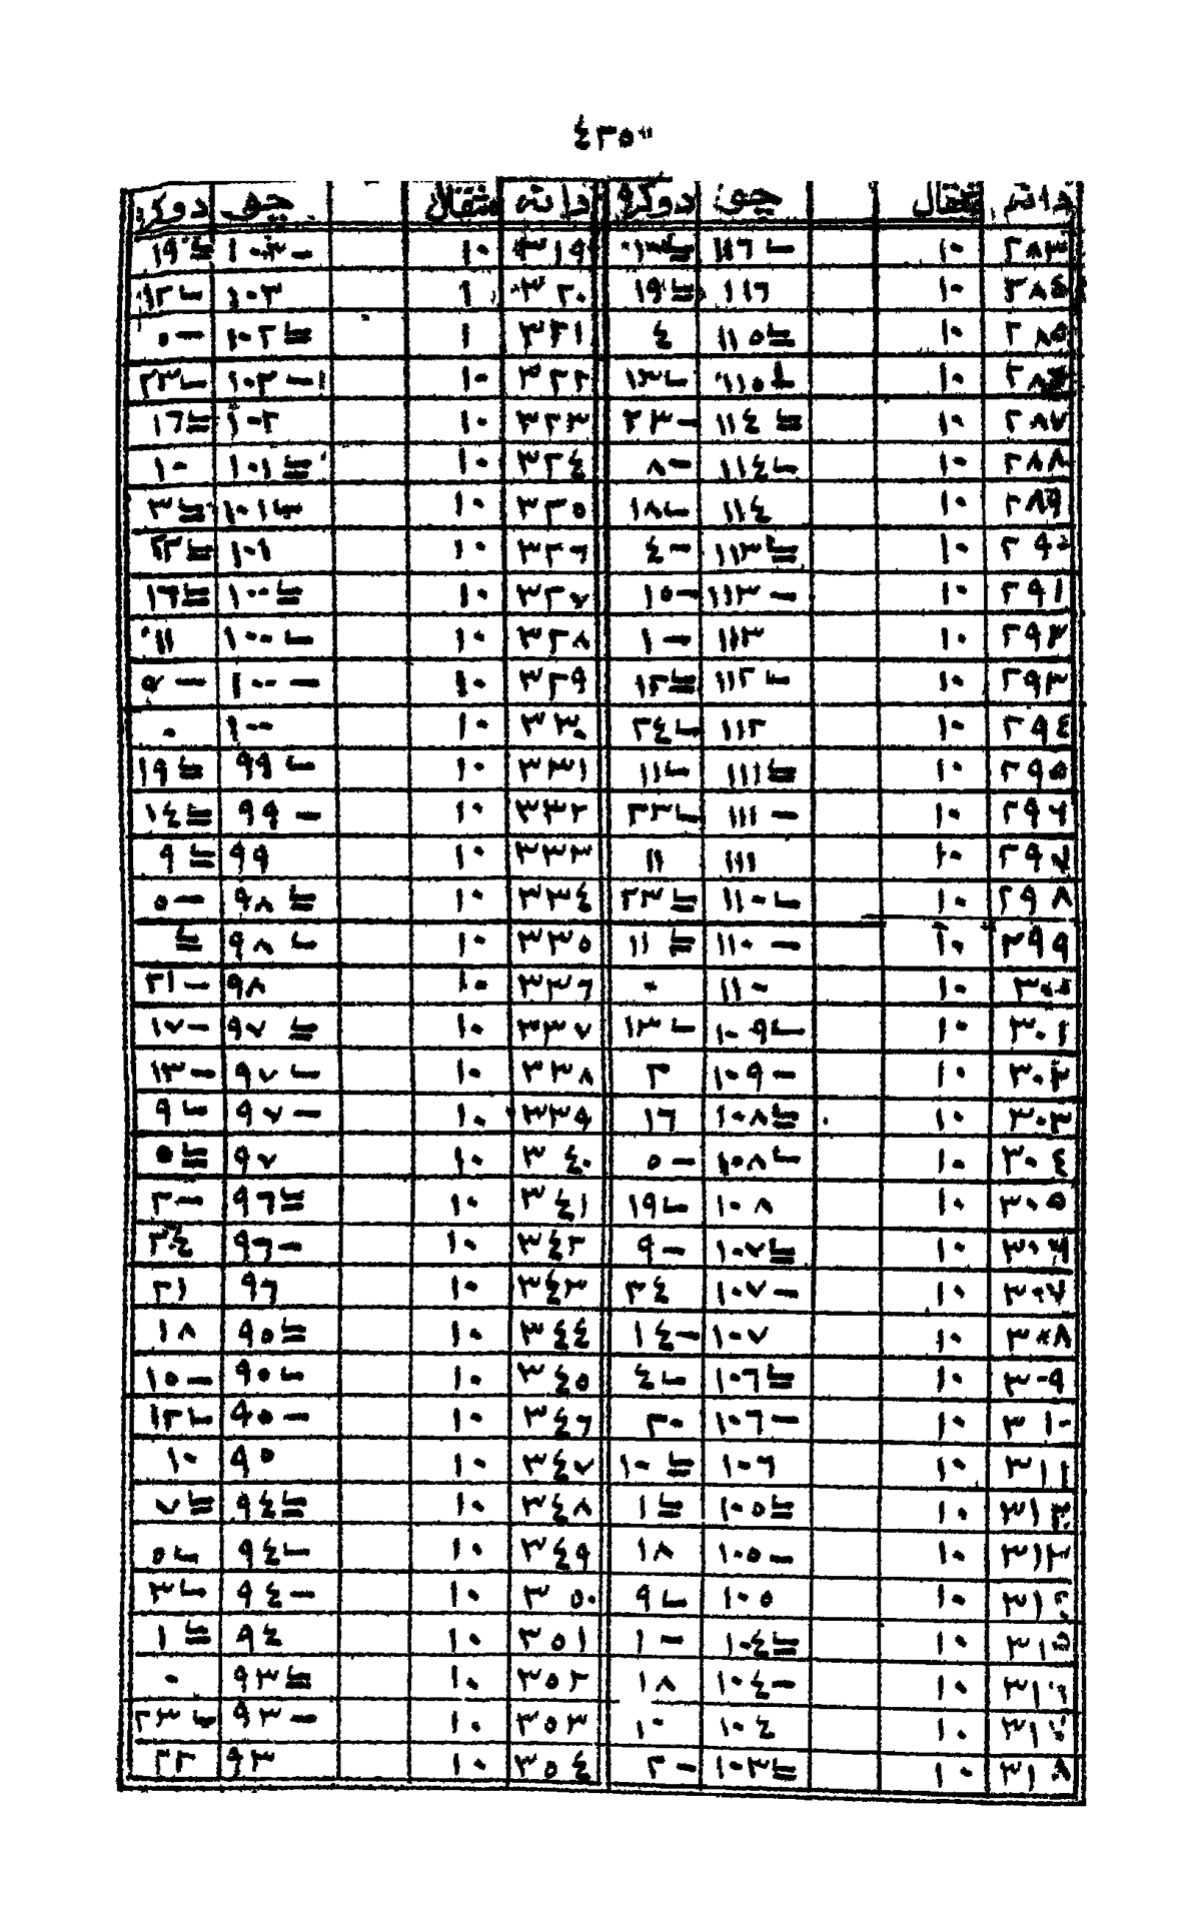 ٤٣٥
دانه مثقال چو دوکره دانه مثقال چو دوکره
٢٨٣ ١٠ ١١٦ ١٣ ٣١٩ ١٠ ١٠٣ - ١٩
٢٨٤ ١٠ ١١٦ ١٩ ٣٢٠ ١ ١٠٣ ١٢
٢٨٥ ١٠ ١١٥ ٤ ٣٢١ ١ ١٠٢ ٥ -
٢٨٦ ١٠ ١١٥ ١٣ ٣٢٢ ١٠ ١٠٢ - ٢٣
٢٨٧ ١٠ ١١٤ ٢٣ - ٣٢٣ ١٠ ١٠٢ ١٦
٢٨٨ ١٠ ١١٤ ٨ - ٣٢٤ ١٠ ١٠١ ١٠
٢٨٩ ١٠ ١١٤ ١٨ ٣٢٥ ١٠ ١٠١ ٣
٢٩٠ ١٠ ١١٣ ٤ - ٣٢٦ ١٠ ١٠١ ٢٢
٢٩١ ١٠ ١١٣ - ١٥ - ٣٢٧ ١٠ ١٠٠ ١٦
٢٩٢ ١٠ ١١٣ ١ - ٣٢٨ ١٠ ١٠٠ ١١
٢٩٣ ١٠ ١١٢ ١٢ ٣٢٩ ١٠ ١٠٠ - ٥ -
٢٩٤ ١٠ ١١٢ ٢٤ ٣٣٠ ١٠ ١٠٠ ٠
٢٩٥ ١٠ ١١١ ١١ ٣٣١ ١٠ ٩٩ ١٩
٢٩٦ ١٠ ١١١ - ٢٢ ٣٣٢ ١٠ ٩٩ - ١٤
٢٩٧ ١٠ ١١١ ١١ ٣٣٣ ١٠ ٩٩ ٩
٢٩٨ ١٠ ١١٠ ٢٣ ٣٣٤ ١٠ ٩٨ ٥ -
٢٩٩ ١٠ ١١٠ - ١١ ٣٣٥ ١٠ ٩٨
٣٠٠ ١٠ ١١٠ ٠ ٣٣٦ ١٠ ٩٨ ٢١ -
٣٠١ ١٠ ١٠٩ ١٣ ٣٣٧ ١٠ ٩٧ ١٧ -
٣٠٢ ١٠ ١٠٩ - ٢ ٣٣٨ ١٠ ٩٧ ١٣ -
٣٠٣ ١٠ ١٠٨ ١٦ ٣٣٩ ١٠ ٩٧ - ٩
٣٠٤ ١٠ ١٠٨ ٥ - ٣٤٠ ١٠ ٩٧ ٥
٣٠٥ ١٠ ١٠٨ ١٩ ٣٤١ ١٠ ٩٦ ٢ -
٣٠٦ ١٠ ١٠٧ ٩ - ٣٤٢ ١٠ ٩٦ - ٢٤
٣٠٧ ١٠ ١٠٧ - ٢٤ ٣٤٣ ١٠ ٩٦ ٢١
٣٠٨ ١٠ ١٠٧ ١٤ - ٣٤٤ ١٠ ٩٥ ١٨
٣٠٩ ١٠ ١٠٦ ٤ ٣٤٥ ١٠ ٩٥ ١٥ -
٣١٠ ١٠ ١٠٦ - ٢٠ ٣٤٦ ١٠ ٩٥ - ١٢
٣١١ ١٠ ١٠٦ ١٠ ٣٤٧ ١٠ ٩٥ ١٠
٣١٢ ١٠ ١٠٥ ١ ٣٤٨ ١٠ ٩٤ ٧
٣١٣ ١٠ ١٠٥ - ١٨ ٣٤٩ ١٠ ٩٤ ٥
٣١٤ ١٠ ١٠٥ ٩ ٣٥٠ ١٠ ٩٤ - ٣
٣١٥ ١٠ ١٠٤ ١ - ٣٥١ ١٠ ٩٤ ١
٣١٦ ١٠ ١٠٤ - ١٨ ٣٥٢ ١٠ ٩٣ ٠
٣١٧ ١٠ ١٠٤ ١٠ ٣٥٣ ١٠ ٩٣ - ٢٣
٣١٨ ١٠ ١٠٣ ٢ - ٣٥٤ ١٠ ٩٣ ٢٢